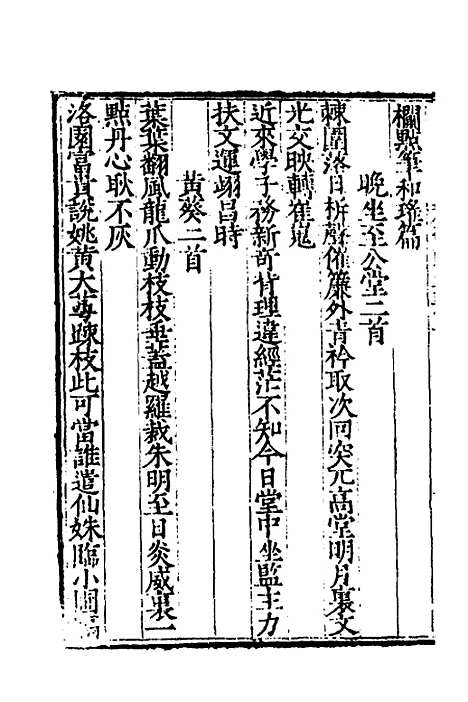 欄㸃筆和瑤篇
晚坐至公堂二首
棘圍落日柝聲催簾外青衿取次回突兀高堂明月裏文
光交映轉崔嵬
近來學子務新奇背理違經茫不知今日堂中坐監主力
扶文運翊昌時
黄葵二首
葉葉翻風龍爪動枝枝垂蓋越羅裁朱明至日炎威裏一
㸃丹心耿不灰
洛園富貴說姚黄大萼踈枝此可當誰遣仙姝臨小圃